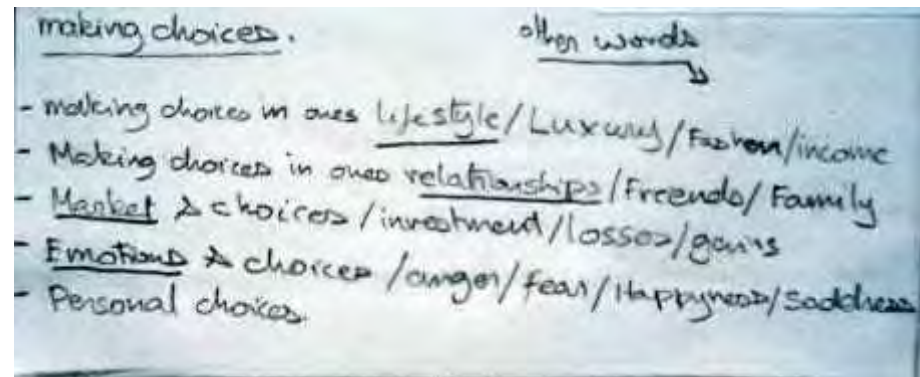 making choices.
other words
- making choices in ones lifestyle/Luxury/Fashion/income
- Making choices in ones relationships/Freends/Family
- Market & choices/investment/losses/gains
- Emotions & choices/anger/fear/Happyness/Saddness
- Personal choices.